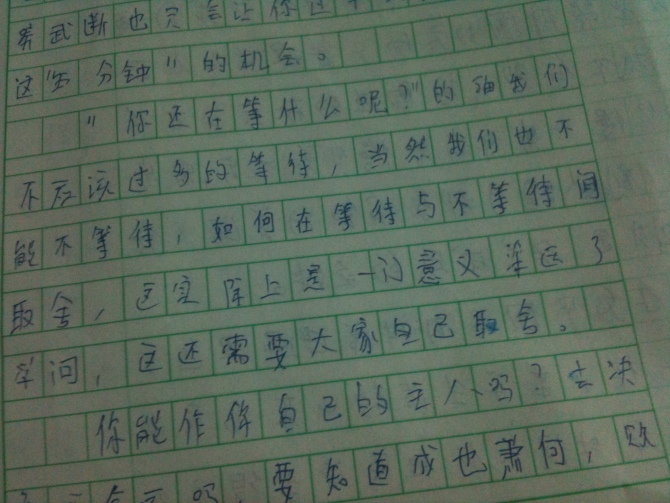 断也只会让你这
这"5分钟"的机会。
"你还在等什么呢?"的确我们
不应该过多的等待,当然我们也不
能不等待,如何在等待与不等待间
取舍,这实际上是一门意义深远了
学问,这还需要大家自己取舍。
你能作你自己的主人吗?去决
吗,要知道成也萧何,败